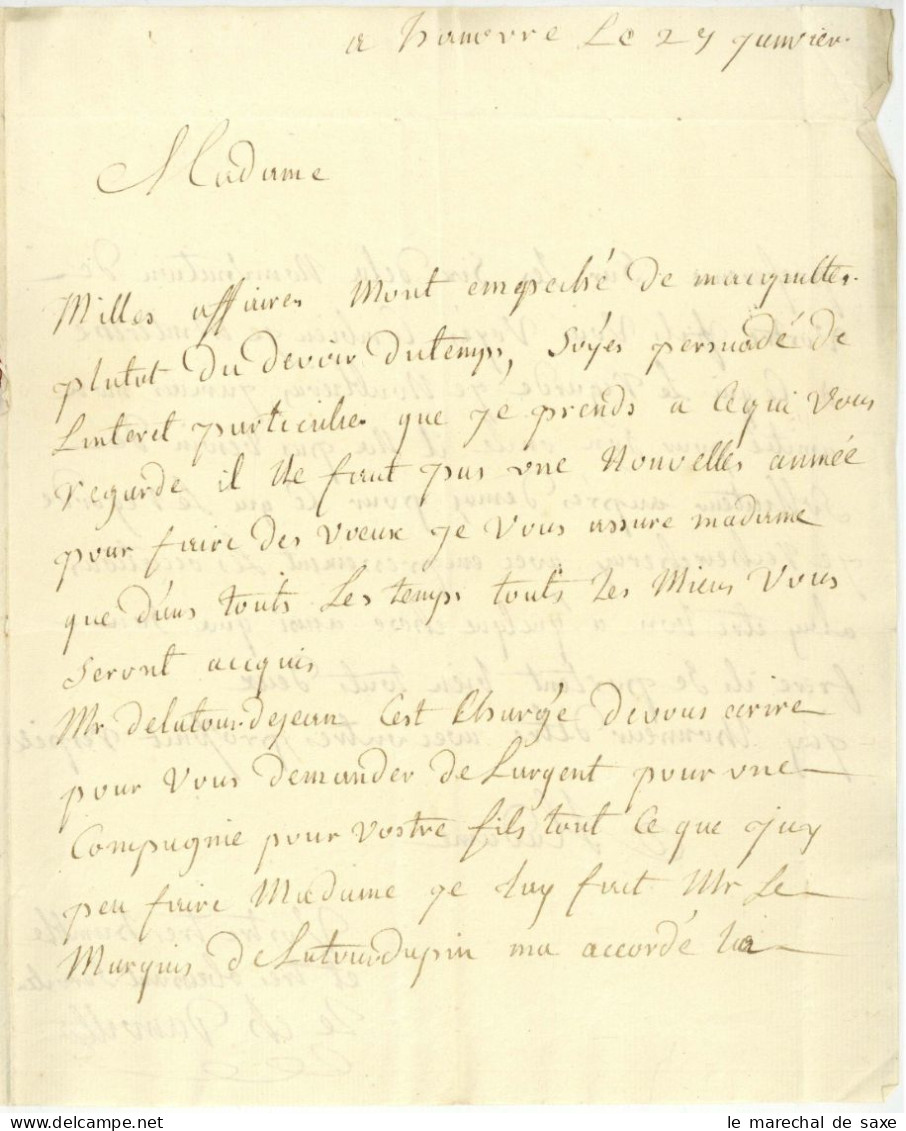 a hanovre Le 29 janvier.
Madame
Milles affaires mont empeché de macquitter
plutot du devoir du temps, Soyes persuadé de
Linteret particulier que je prends a Cequi Vous
regarde il Ne faut pas une Nouvelles année
pour faire des voeux je Vous assure madame
que dans touts Les temps touts Les Miens Vous
Seront acquis
Mr delatourdejean Cest Chargé devous ecrire
pour Vous demander de Largent pour une
Compagnie pour vostre fils tout Ce que jay
peu faire Madame je Lay fait Mr Le
Marquis de Latourdupin ma accordé La
le marechal de saxe